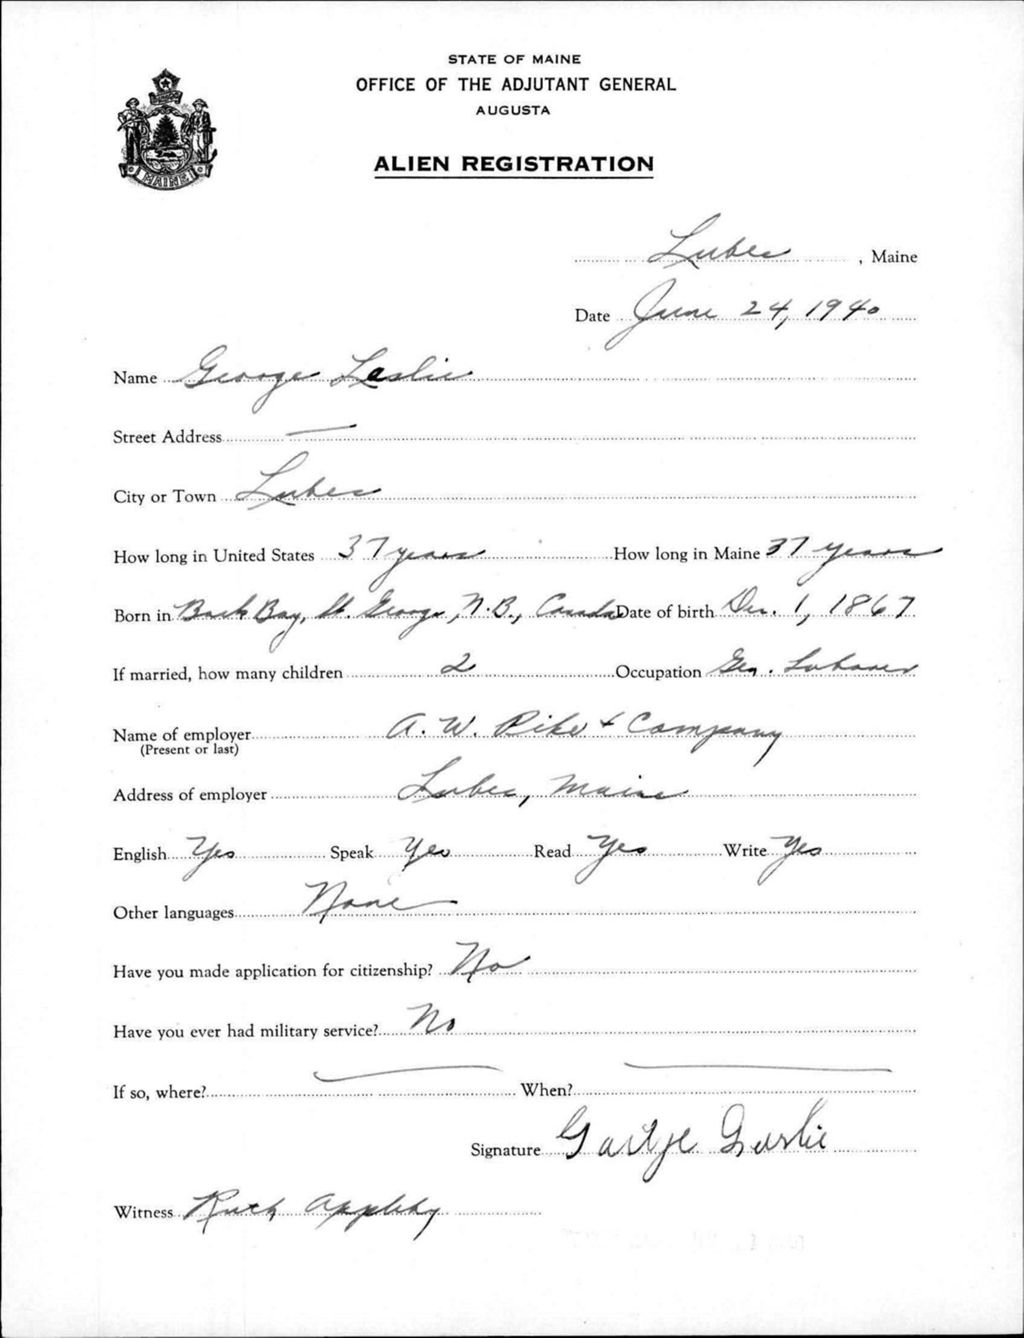 STATE OF MAINE
OFFICE OF THE ADJUTANT GENERAL
AUGUSTA
MAINE
ALIEN REGISTRATION
Lubec, Maine
Date June 24, 1940
Name George Leslie
Street Address —
City or Town Lubec
How long in United States 37 years How long in Maine 37 years
Born in Back Bay, St. George, N.B., Canada Date of birth Dec. 1, 1867
If married, how many children 2 Occupation Gen. Laborer
Name of employer A. W. Pike + Company
(Present or last)
Address of employer Lubec, Maine
English Yes Speak Yes Read Yes Write Yes
Other languages None
Have you made application for citizenship? No
Have you ever had military service? No
If so, where? — When? —
Signature Leslie
Witness Ruth Appleby